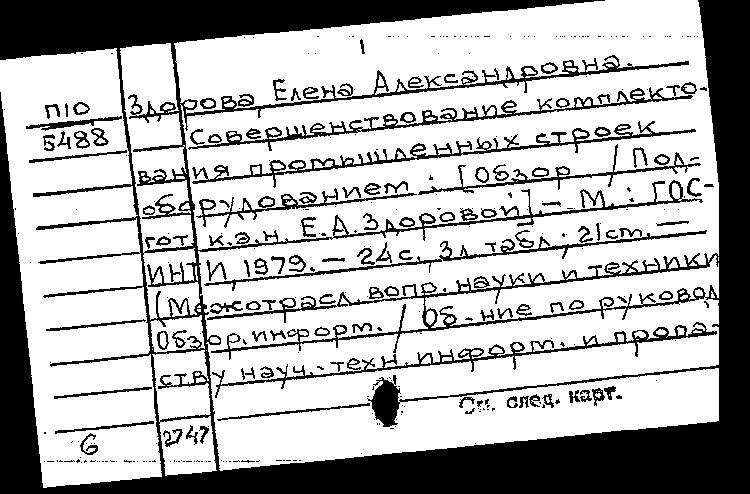 1
П10 Здорова, Елена Александровна.
5488 Совершенствование комплекто-
вания промышленных строек
оборудованием : [Обзор / Под-
гот. к.э.н. Е.А. Здоровой]. — М. : ГОС-
ИНТИ, 1979. — 24 с., 3 л. табл. ; 21 см. —
(Межотрасл. вопр. науки и техники
Обзор. информ. / Об-ние по руковод
ству науч.-техн. информ. и пропа-
См. след. карт.
6 2747